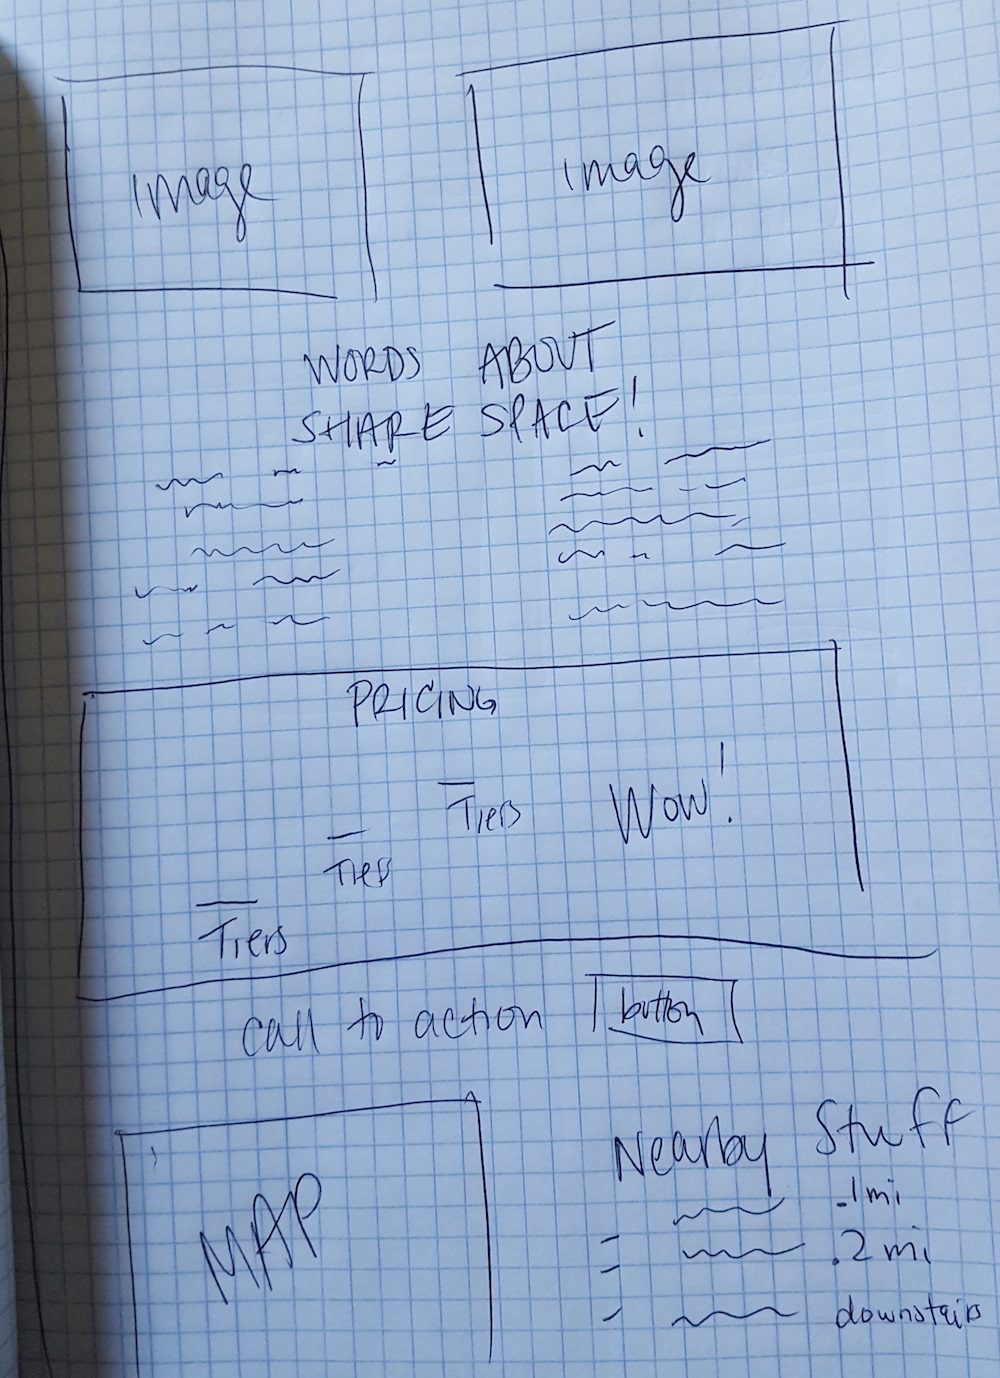 image
image
WORDS ABOUT
SHARE SPACE!
PRICING
Tiers
Tiers
Tiers
Wow!
call to action button
MAP
Nearby Stuff
.1mi
.2 mi
downstairs